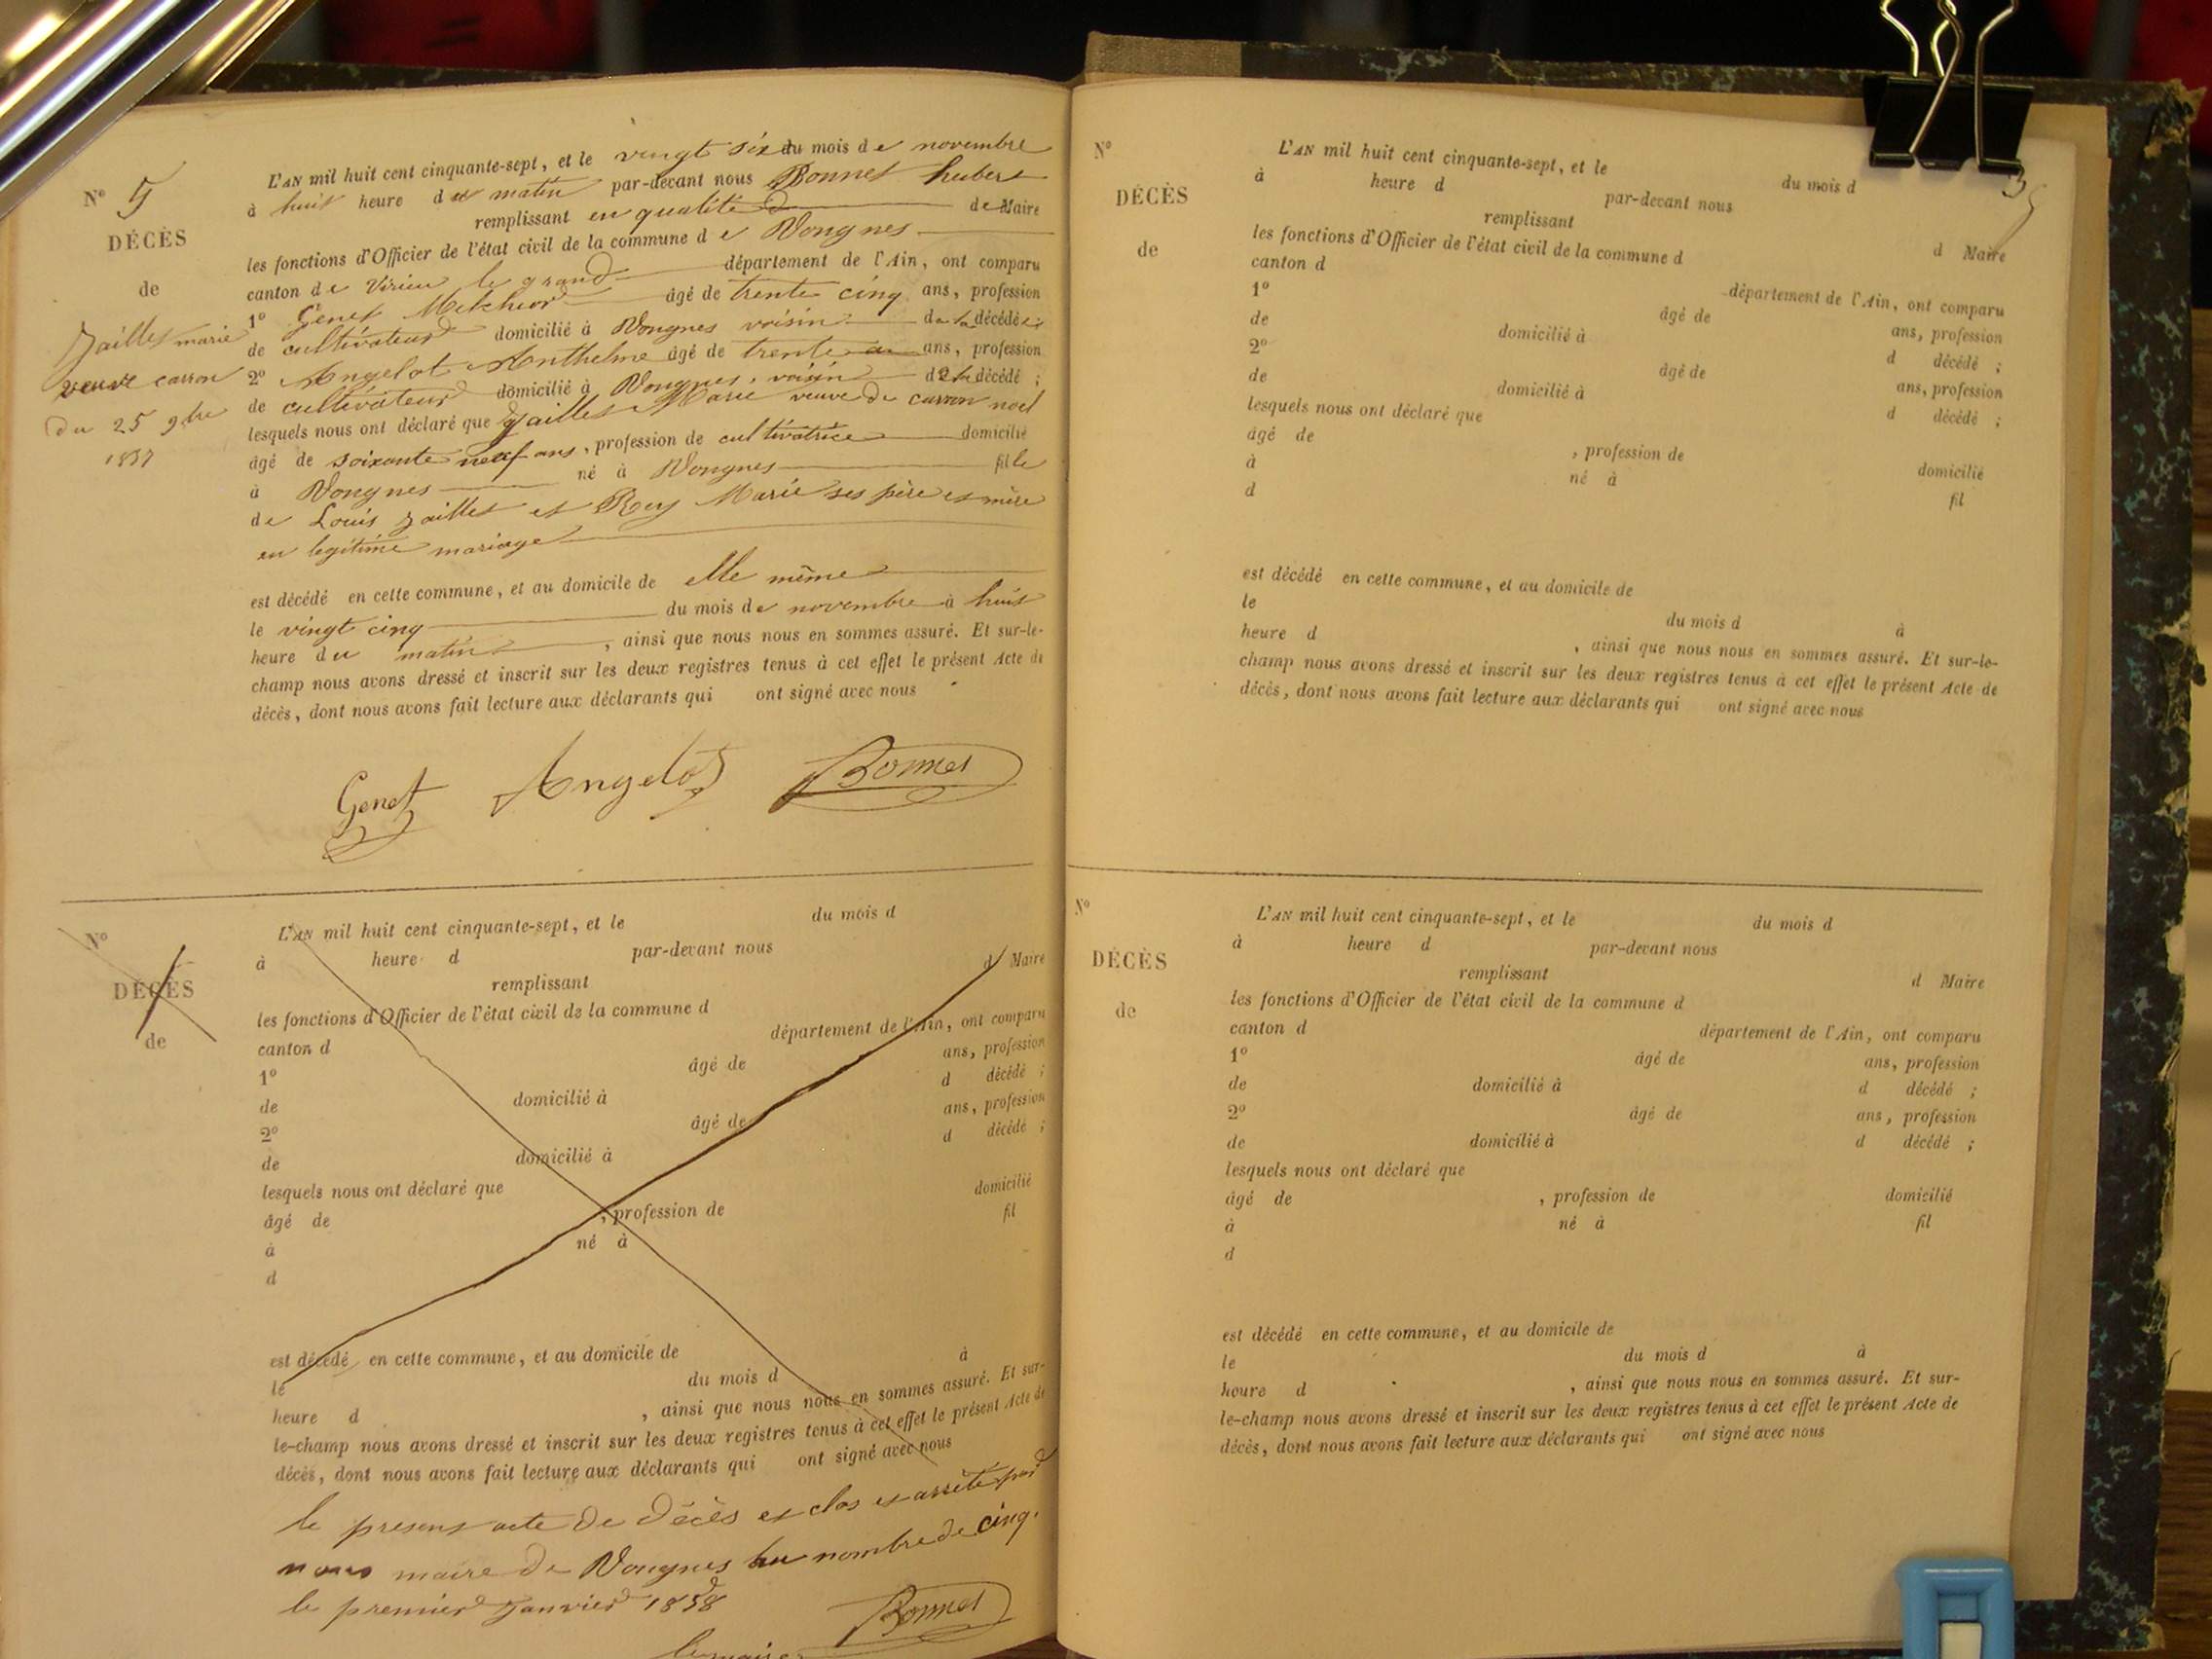 N° 5
DÉCÈS
de
Jaillet marie
veuve carron
du 25 9bre
1857
L'AN mil huit cent cinquante-sept, et le vingt six du mois de novembre
à huit heure du matin par-devant nous Bonnet hubert
remplissant en qualité de Maire
les fonctions d'Officier de l'état civil de la commune de Vongnes
canton de Virieu le grand département de l'Ain, ont comparu
1° Genet Melchior âgé de trente cinq ans, profession
de cultivateur domicilié à Vongnes voisin de la décédée
2° Angelot Anthelme âgé de trente ans, profession
de cultivateur domicilié à Vongnes, voisin de la décédé ;
lesquels nous ont déclaré que Jaillet Marie veuve de carron noel
âgé de soixante neuf ans, profession de cultivatrice domicilié
à Vongnes né à Vongnes fille
de Louis Jaillet et Rey Marie ses père et mère
en legitime mariage
est décédé en cette commune, et au domicile de elle même
le vingt cinq du mois de novembre à huit
heure du matin, ainsi que nous nous en sommes assuré. Et sur-le-
champ nous avons dressé et inscrit sur les deux registres tenus à cet effet le présent Acte de
décès, dont nous avons fait lecture aux déclarants qui ont signé avec nous
Genet Angelot Bonnet
N°
DÉCÈS
de
L'AN mil huit cent cinquante-sept, et le du mois d
à heure d par-devant nous
remplissant d Maire
les fonctions d'Officier de l'état civil de la commune d
canton d département de l'Ain, ont comparu
1° âgé de ans, profession
de domicilié à d décédé ;
2° âgé de ans, profession
de domicilié à d décédé ;
lesquels nous ont déclaré que
âgé de , profession de domicilié
à né à fil
d
est décédé en cette commune, et au domicile de
le du mois d à
heure d , ainsi que nous nous en sommes assuré. Et sur-
le-champ nous avons dressé et inscrit sur les deux registres tenus à cet effet le présent Acte de
décès, dont nous avons fait lecture aux déclarants qui ont signé avec nous
le present acte de décès et clos et arrêté par
nous maire de Vongnes au nombre de cinq.
le premier Janvier 1858
Bonnet
le maire
N°
DÉCÈS
de
L'AN mil huit cent cinquante-sept, et le du mois d
à heure d par-devant nous
remplissant d Maire
les fonctions d'Officier de l'état civil de la commune d
canton d département de l'Ain, ont comparu
1° âgé de ans, profession
de domicilié à d décédé ;
2° âgé de ans, profession
de domicilié à d décédé ;
lesquels nous ont déclaré que
âgé de , profession de domicilié
à né à fil
d
est décédé en cette commune, et au domicile de
le du mois d à
heure d , ainsi que nous nous en sommes assuré. Et sur-le-
champ nous avons dressé et inscrit sur les deux registres tenus à cet effet le présent Acte de
décès, dont nous avons fait lecture aux déclarants qui ont signé avec nous
N°
DÉCÈS
de
L'AN mil huit cent cinquante-sept, et le du mois d
à heure d par-devant nous
remplissant d Maire
les fonctions d'Officier de l'état civil de la commune d
canton d département de l'Ain, ont comparu
1° âgé de ans, profession
de domicilié à d décédé ;
2° âgé de ans, profession
de domicilié à d décédé ;
lesquels nous ont déclaré que
âgé de , profession de domicilié
à né à fil
d
est décédé en cette commune, et au domicile de
le du mois d à
heure d , ainsi que nous nous en sommes assuré. Et sur-
le-champ nous avons dressé et inscrit sur les deux registres tenus à cet effet le présent Acte de
décès, dont nous avons fait lecture aux déclarants qui ont signé avec nous